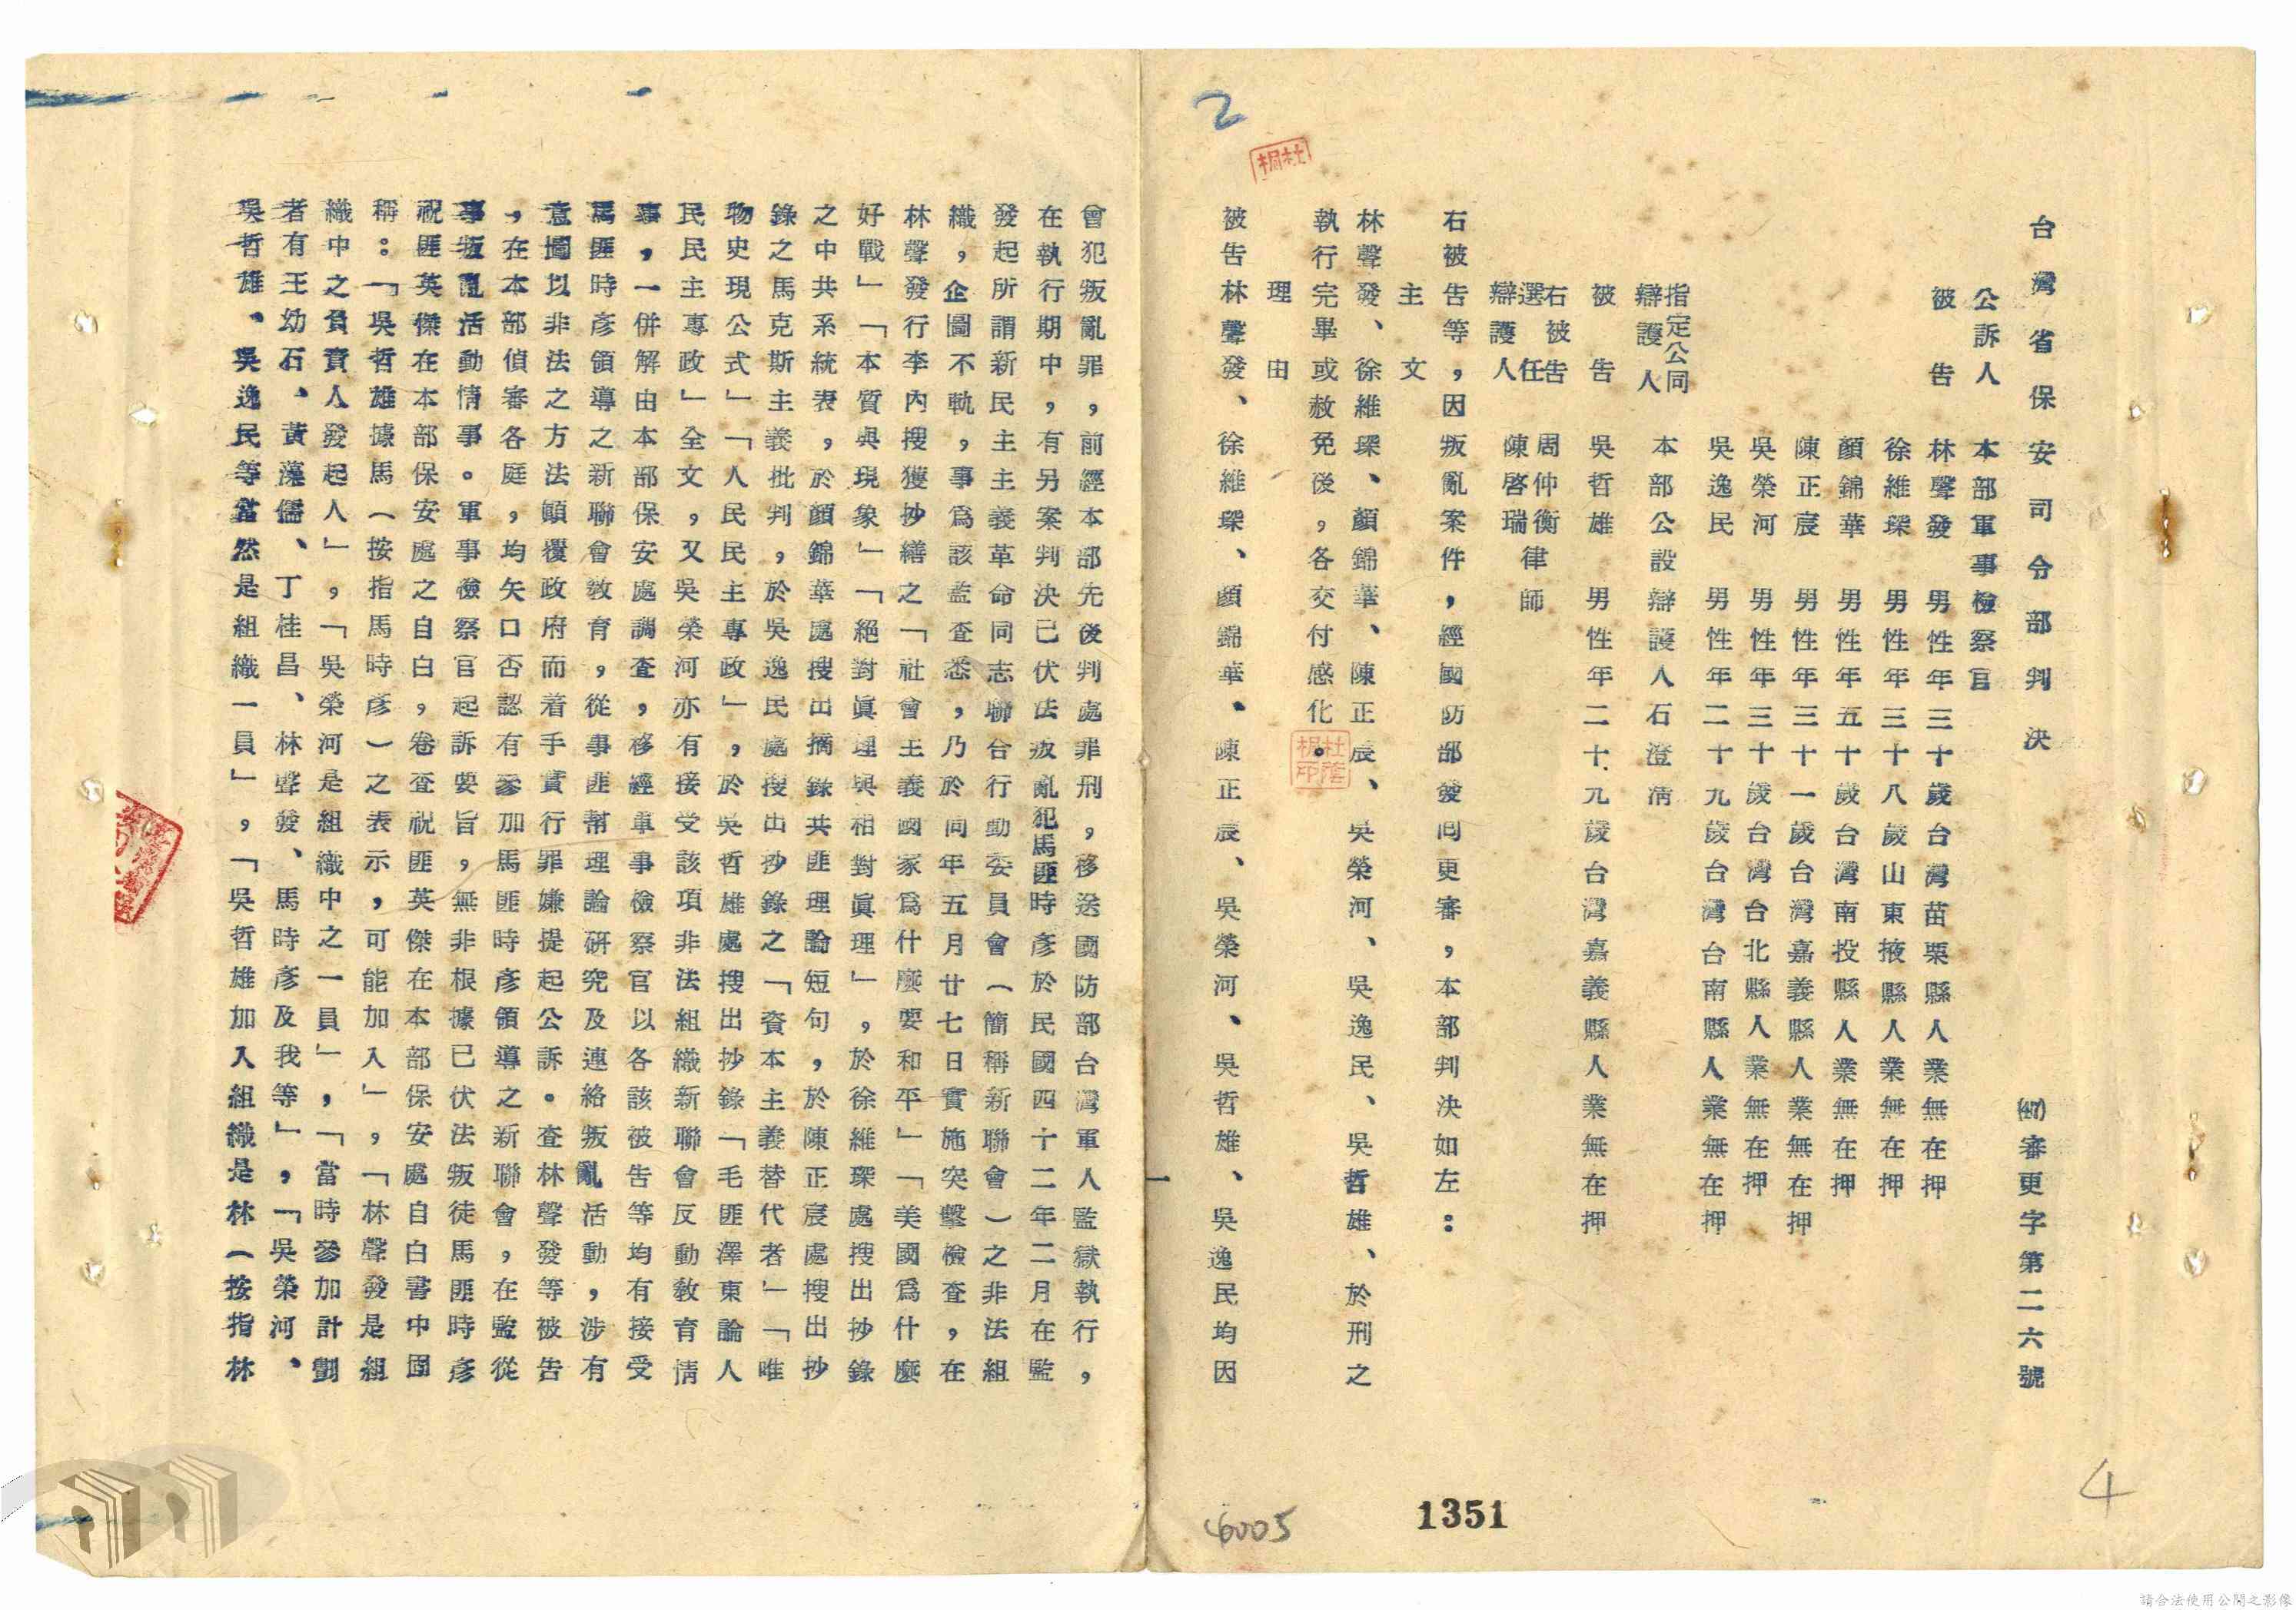 台灣省保安司令部判決
(47)審更字第二六號
公訴人　本部軍事檢察官
被告　林聲發　男性年三十歲台灣苗栗縣人業無在押
徐維琛　男性年三十八歲山東掖縣人業無在押
顏錦華　男性年五十歲台灣南投縣人業無在押
陳正宸　男性年三十一歲台灣嘉義縣人業無在押
吳榮河　男性年三十歲台灣台北縣人業無在押
吳逸民　男性年二十九歲台灣台南縣人業無在押
指定公同辯護人　本部公設辯護人石澄清
被告　吳哲雄　男性年二十九歲台灣嘉義縣人業無在押
右被告選任辯護人　周仲衡陳啓瑞律師
右被告等，因叛亂案件，經國防部發回更審，本部判決如左：
主文
林聲發、徐維琛、顏錦華、陳正宸、吳榮河、吳逸民、吳哲雄、於刑之
執行完畢或赦免後，各交付感化。
理由
被告林聲發、徐維琛、顏錦華、陳正宸、吳榮河、吳哲雄、吳逸民均因
一
會犯叛亂罪，前經本部先後判處罪刑，移送國防部台灣軍人監獄執行，
在執行期中，有另案判決已伏法叛亂犯馬匪時彥於民國四十二年二月在監
發起所謂新民主主義革命同志聯合行動委員會（簡稱新聯會）之非法組
織，企圖不軌，事爲該監查悉，乃於同年五月廿七日實施突擊檢查，在
林聲發行李內搜獲抄繕之「社會主義國家爲什麼要和平」「美國爲什麼
好戰」「本質與現象」「絕對眞理與相對眞理」，於徐維琛處搜出抄錄
之中共系統表，於顏錦華處搜出摘錄共匪理論短句，於陳正宸處搜出抄
錄之馬克斯主義批判，於吳逸民處搜出抄錄之「資本主義替代者」「唯
物史現公式」「人民民主專政」，於吳哲雄處搜出抄錄「毛匪澤東論人
民民主專政」全文，又吳榮河亦有接受該項非法組織新聯會反動敎育情
事，一併解由本部保安處調查，移經軍事檢察官以各該被告等均有接受
馬匪時彥領導之新聯會敎育，從事匪幫理論研究及連絡叛亂活動，涉有
意圖以非法之方法顚覆政府而着手實行罪嫌提起公訴。查林聲發等被告
，在本部偵審各庭，均矢口否認有參加馬匪時彥領導之新聯會，在監從
事叛亂活動情事。軍事檢察官起訴要旨，無非根據已伏法叛徒馬匪時彥
祝匪英傑在本部保安處之自白，卷查祝匪英傑在本部保安處自白書中固
稱：「吳哲雄據馬（按指馬時彥）之表示，可能加入」，「林聲發是組
織中之負責人發起人」，「吳榮河是組織中之一員」，「當時參加計劃
者有王幼石、黃藻儒、丁桂昌、林聲發、馬時彥及我等」，「吳榮河、
吳哲雄、吳逸民等當然是組織一員」，「吳哲雄加入組織是林（按指林
2
杜桐
杜蔭桐印
4
6005
1351
請合法使用公開之影像